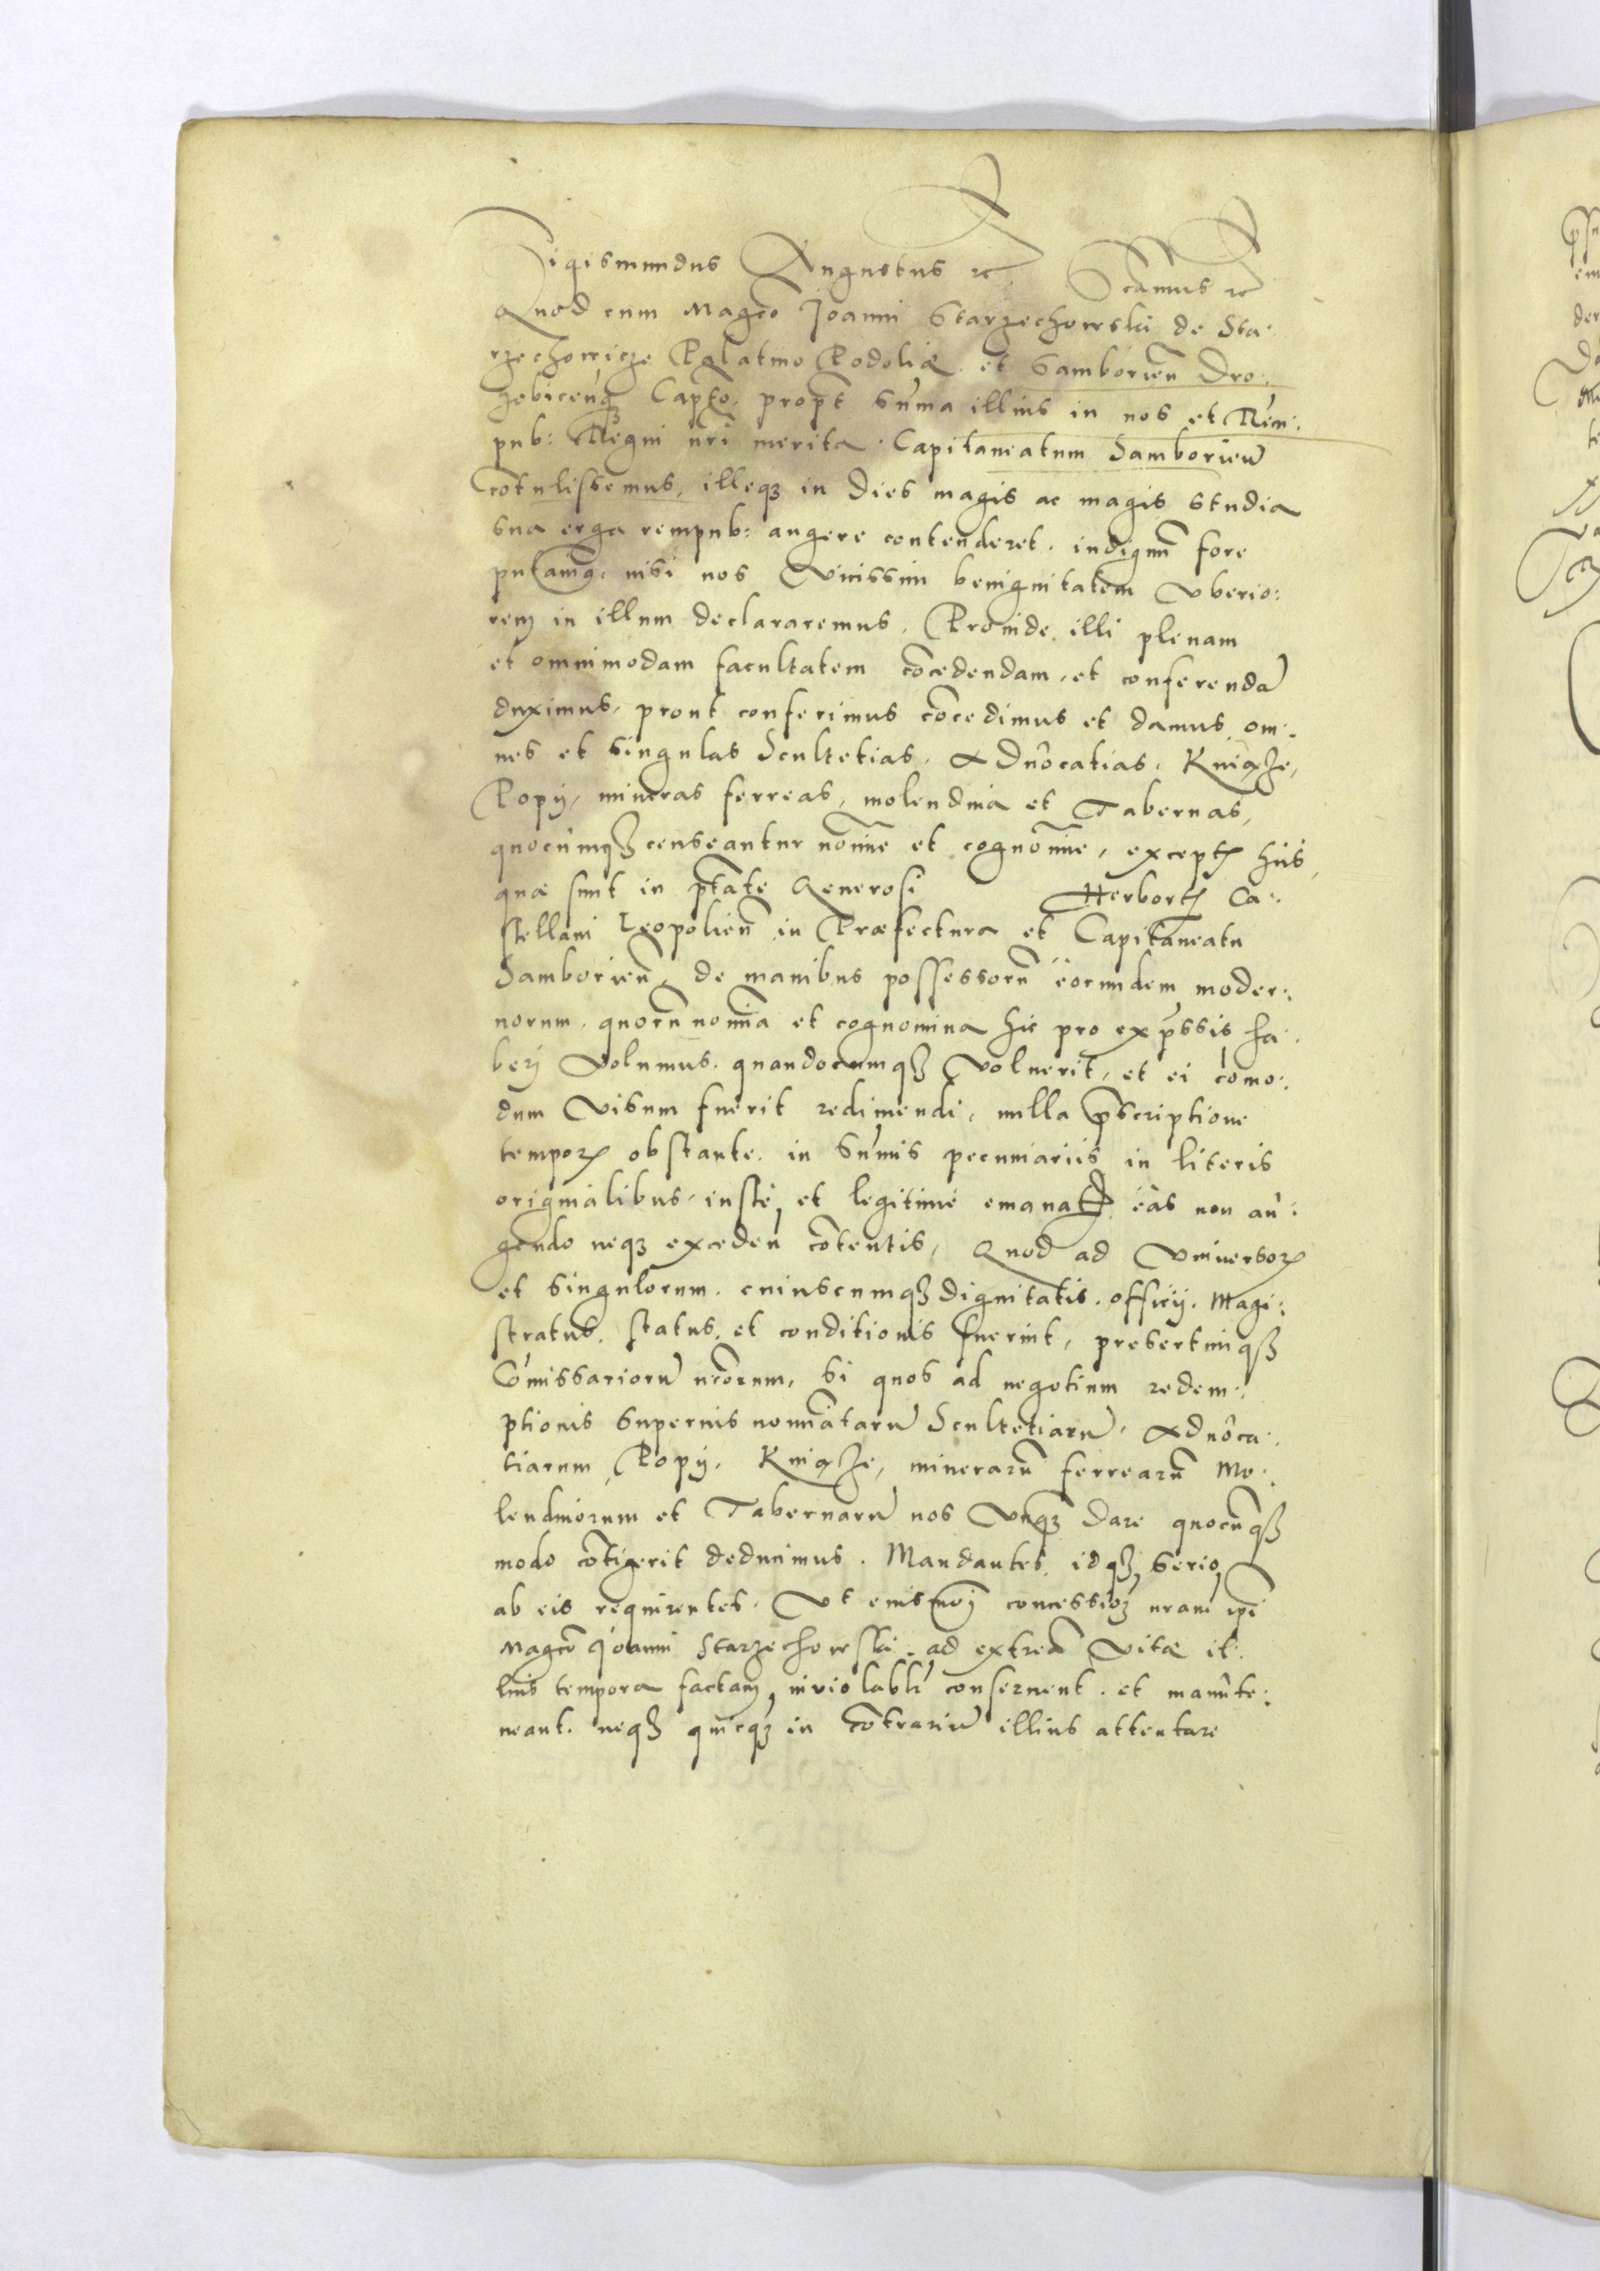 Sigismundus Augustus etc Scimus etc
Quod cum Magco Joanni Starzechowski de Sta:
rzechowicze Palatino Podoliæ et Samborień Dro:
hobiceńq3 Capto, propt suma illius in nos et Rem:
pub: Regni nri merita Capitaneatum Samborień
cotulissemus, illeq3 in dies magis ac magis studia
sua erga rempub: augere contenderet, indignū fore
putamq, nisi nos vicissim benignitatem vberio:
rem in illum declararemus. Proinde illi plenam
et omnimodam facultatem cōcedendam, et conferendā
duximus, prout conferimus cōcedimus et damus, om:
nes et singulas Scultetias, Aduocatias, Knieze,
Popÿ, mineras ferreas, molendina et Tabernas,
quocūmq3 censeantur noīne et cognoīne, except hiis,
quæ sunt in ptate Generosi Herbort Ca:
stellani Leopolień in Præfectura et Capitaneatu
Samborień, de manibus possessorū eorundem moder:
norum, quorū nomīa et cognomina hic pro expssis ha:
berj volumus, quandocumq3 voluerit, et ei cōmo:
dum visum fuerit redimendi, nulla pscriptione
tempor obstante, in sūmis pecuniariis in literis
originalibus, iustè, et legitimè emanat, eas non au:
gendo neq3 exceden cōtentis, Quod ad vniuersor
et singulorum, cuiuscumq3 dignitatis, officÿ, Magi:
stratus, status, et conditionis fuerint, presertimq3
Cōmissariorū nrorum, si quos ad negotium redem:
ptionis supernis nomīatarū Scultetiarū, Aduoca:
tiarum, Popÿ, Knieze, minerarū ferrearū Mo:
lendinorum et Tabernarū nos vnq3 dare quocūq3
modo cōtigerit deducimus. Mandantes, idq3 serio
ab eis requirentes, Vt eiusmoj concessioē nram ipi
Magco Joanni Starzechowski, ad extrema vitæ il:
lius tempora factam, inviolabli conseruent, et manute:
neant, neq3 quicq3 in cōtrariū illius attentare